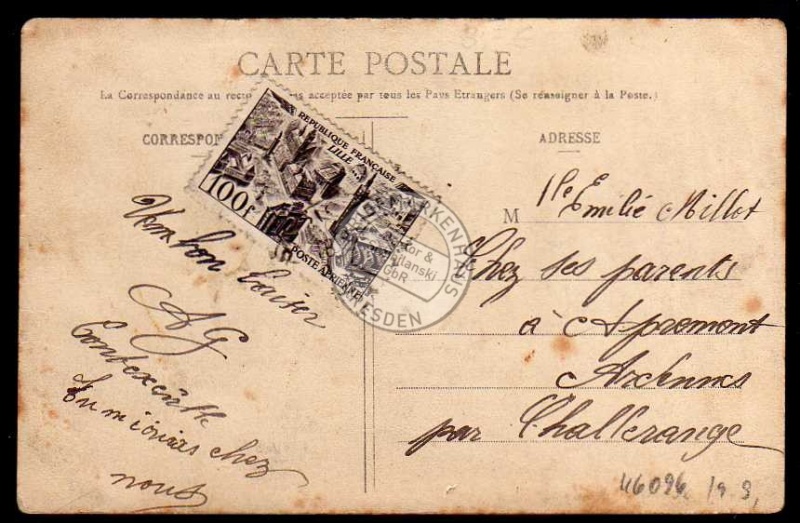 CARTE POSTALE
La Correspondance au recto pas acceptée par tous les Pays Etrangers (Se renseigner à la Poste.)
CORRESPON
ADRESSE
REPUBLIQUE FRANÇAISE
LILLE
100F
POSTE AERIENNE
BRIEFMARKENHAUS
&
ilanski
GbR
DRESDEN
bon baiser
A G
Contrexéville
chez
nous
M lle Emilie Millot
Chez ses parents
à Apremont
Ardennes
par Challerange
46096